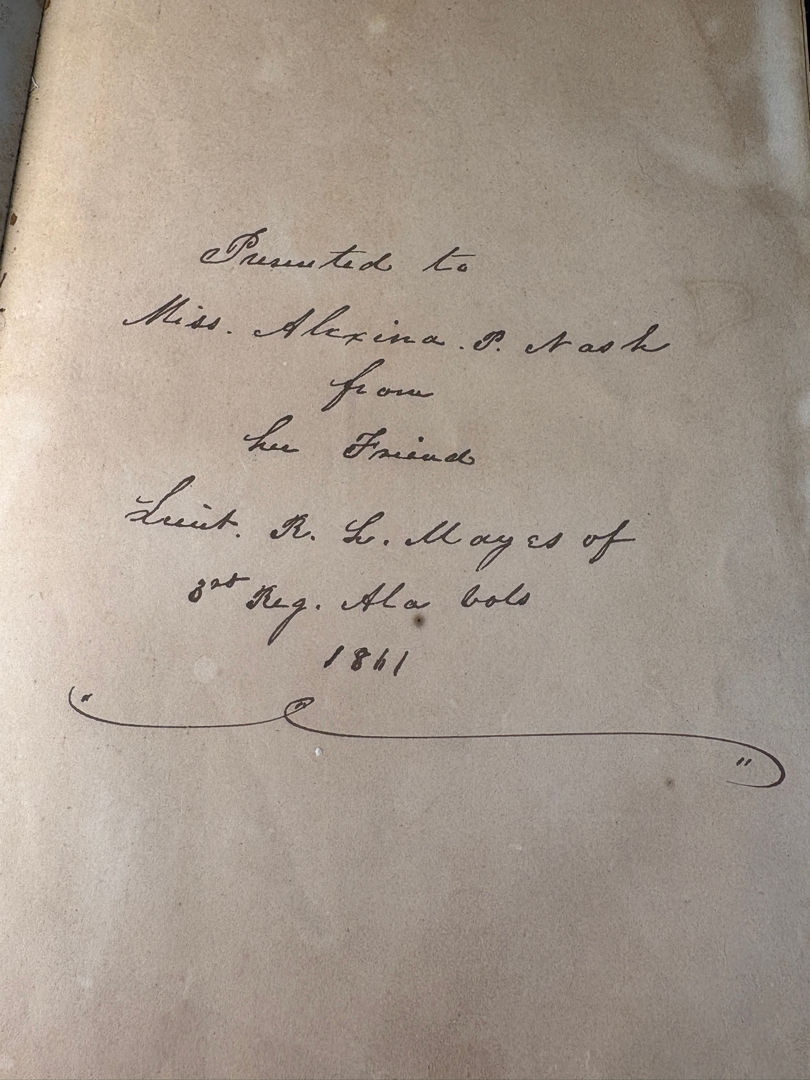 Presented to
Miss. Alexina. P. Nash
from
her Friend
Lieut. R. L. Mayes of
3rd Reg. Ala Vols
1861